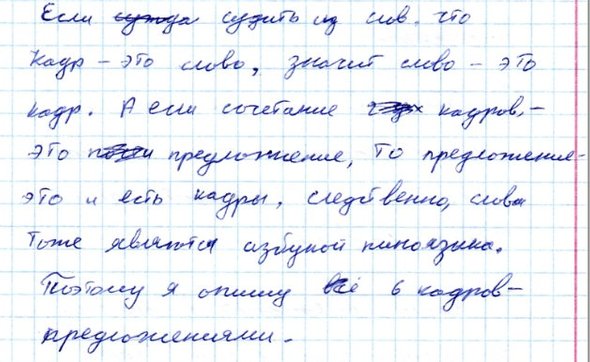 Если судить из слов, что
кадр – это слово, значит слово – это
кадр. А если сочетание кадров, –
это предложение, то предложение –
это и есть кадры, следственно, слова
тоже являются азбукой киноязыка.
Поэтому я опишу всё 6 кадров –
предложениями.